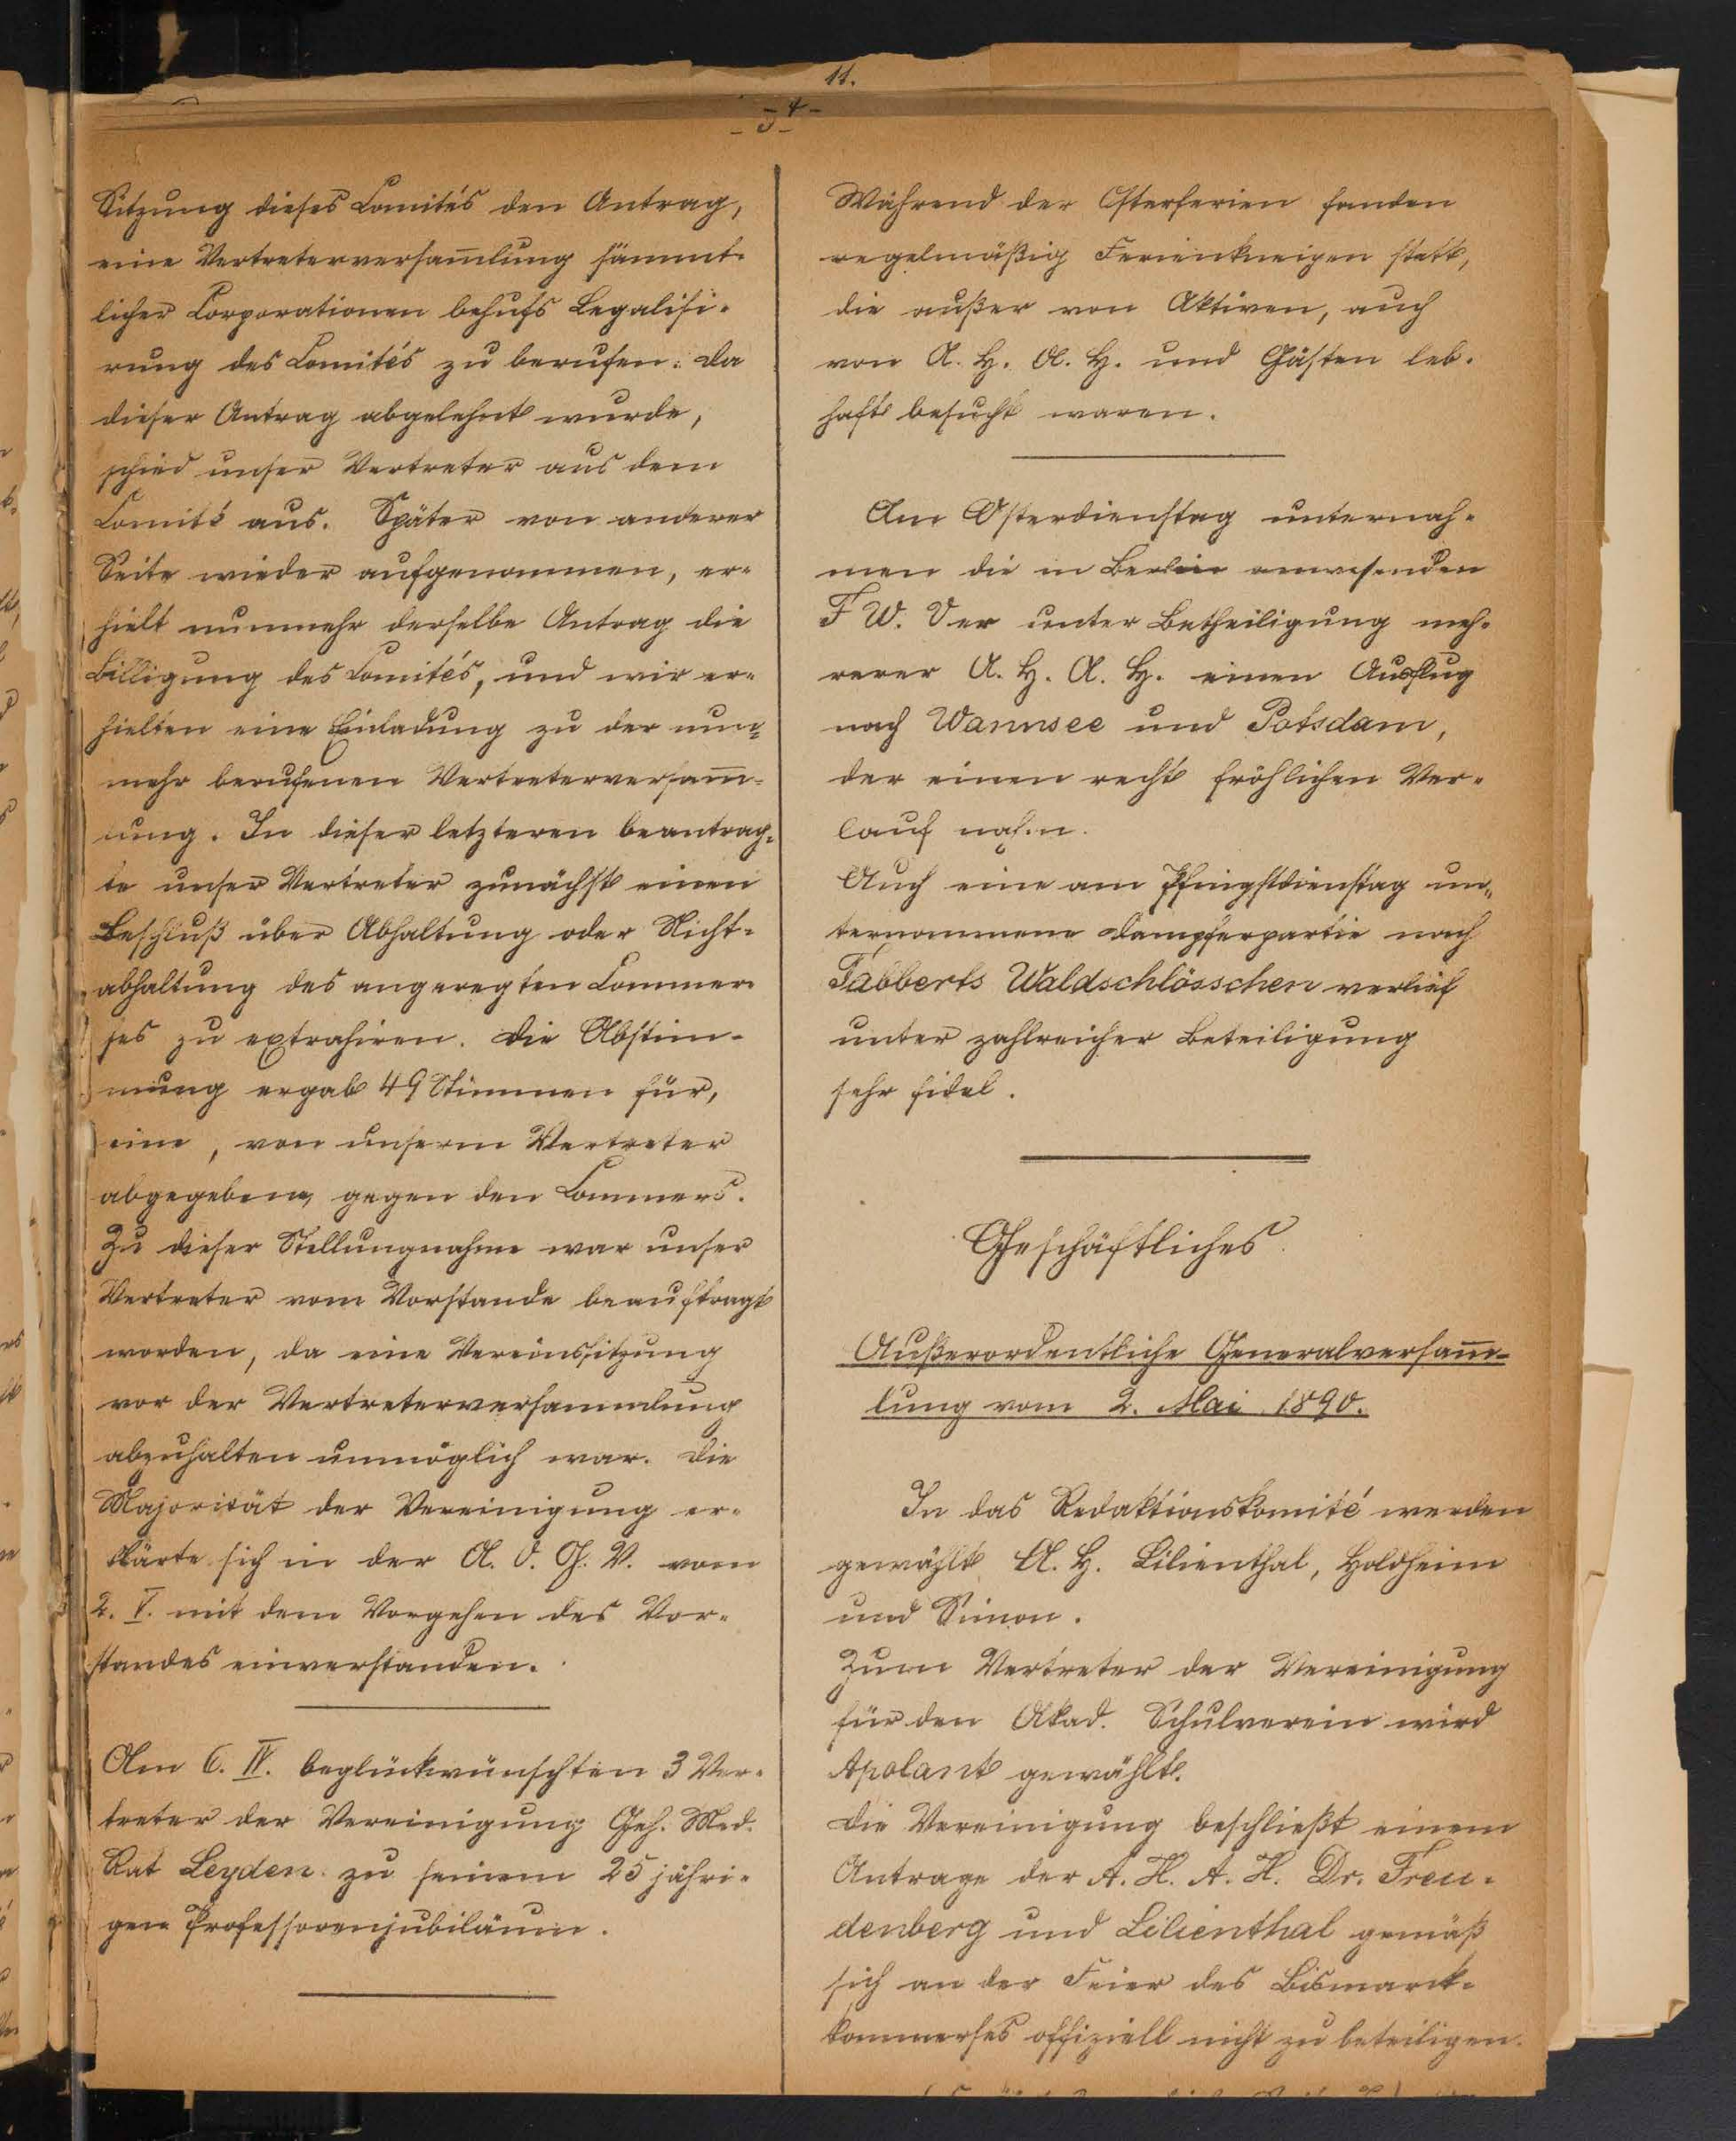 11.
- 4 -
- 3 -
Sitzung dieses Comités den Antrag,
eine Vertreterversam̅lung sämmt-
licher Corporationen behufs Legalisi-
rung des Comités zu berufen. Da
dieser Antrag abgelehnt wurde,
schied unser Vertreter aus dem
Comité aus. Später von anderer
Seite wieder aufgenommen, er-
hielt nunmehr derselbe Antrag die
Billigung des Comités, und wir er-
hielten eine Einladung zu der nun-
mehr berufenen Vertreterversam̅-
lung. In dieser letzteren beantrag-
te unser Vertreter zunächst einen
Beschluß über Abhaltung oder Nicht-
abhaltung des angeregten Commer-
ses zu extrahiren. Die Abstim-
mung ergab 49 Stimmen für,
eine, von unserm Vertreter
abgegebene, gegen den Commers.
Zu dieser Stellungnahme war unser
Vertreter vom Vorstande beauftragt
worden, da eine Vereinssitzung
vor der Vertreterversammlung
abzuhalten unmöglich war. Die
Majorität der Vereinigung er-
klärte sich in der A. O. G. V. vom
2. V. mit dem Vorgehen des Vor-
standes einverstanden.
Am 6. IV. beglückwünschten 3 Ver-
treter der Vereinigung Geh. Med.
Rat Leyden zu seinem 25 jähri-
gen Professorenjubiläum.
Während der Osterferien fanden
regelmäßig Ferienkneipen statt,
die außer von Aktiven, auch
von A. H. A. H. und Gästen leb-
haft besucht waren.
Am Osterdienstag unternah-
men die in Berlin anwesenden
F W. Ver unter Betheiligung meh-
rerer A. H. A. H. einen Ausflug
nach Wannsee und Potsdam,
der einen recht fröhlichen Ver-
lauf nahm.
Auch eine am Pfingstdienstag un-
ternommene Dampferpartie nach
Tabberts Waldschlösschen verlief
unter zahlreicher Beteiligung
sehr fidel.
Geschäftliches.
Außerordentliche Generalversam̅-
lung vom 2. Mai 1890.
In das Redaktionskomité werden
gewählt A. H. Lilienthal, Holdheim
und Simon.
Zum Vertreter der Vereinigung
für den Akad. Schulverein wird
Apolant gewählt.
Die Vereinigung beschließt einem
Antrage der A. H. A. H. Dr. Freu-
denberg und Lilienthal gemäß
sich an der Feier des Bismarck-
kommerses offiziell nicht zu beteiligen.